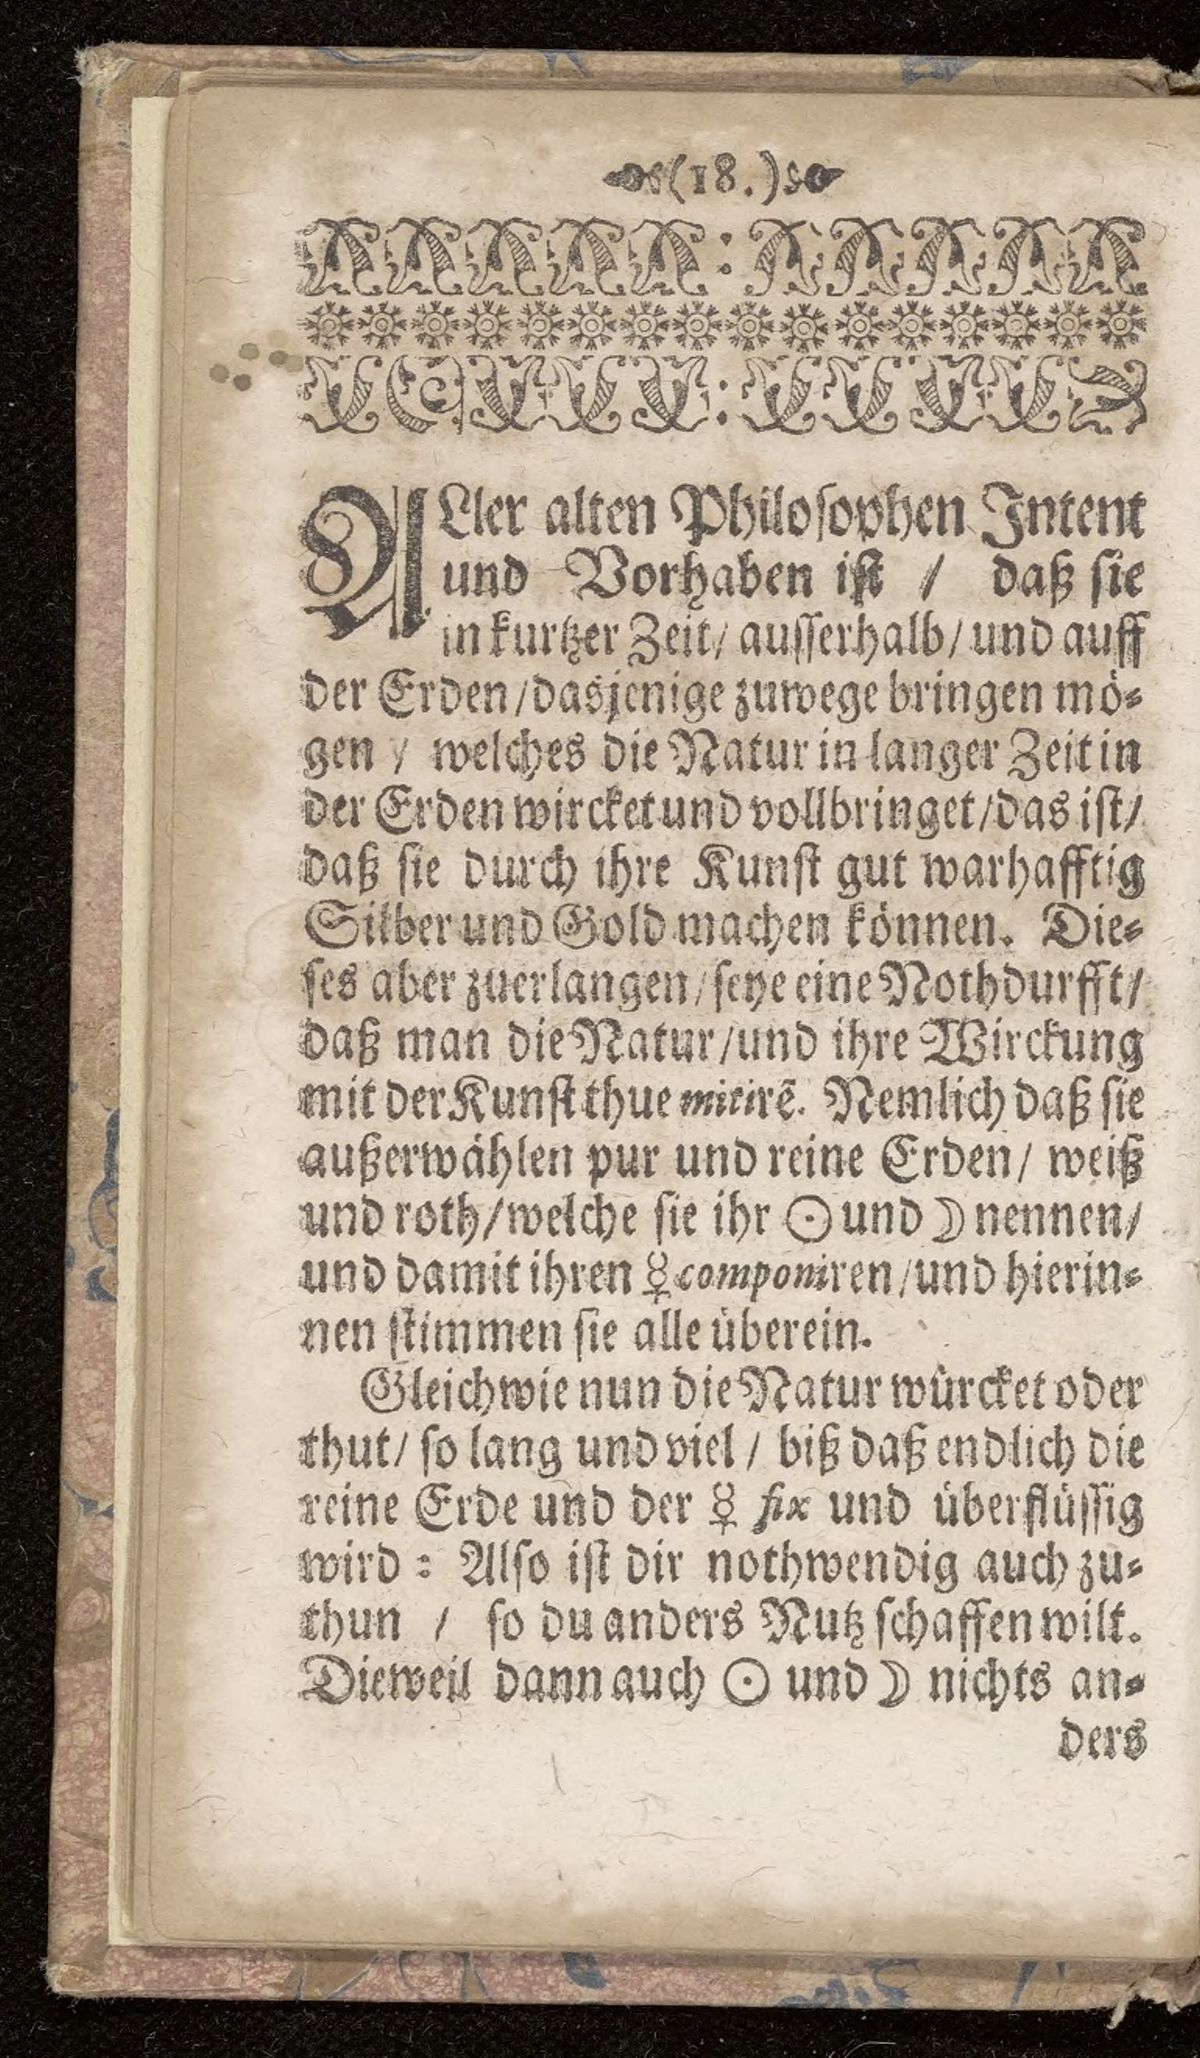 (18.)
ALler alten Philosophen Intent
und Vorhaben ist / daß sie
in kurtzer Zeit/ ausserhalb/ und auff
der Erden/dasjenige zuwege bringen mö-
gen / welches die Natur in langer Zeit in
der Erden wircket und vollbringet/das ist/
daß sie durch ihre Kunst gut warhafftig
Silber und Gold machen können. Die-
ses aber zuerlangen/seye eine Nothdurfft/
daß man die Natur/und ihre Wirckung
mit der Kunst thue mitirē. Nemlich daß sie
außerwählen pur und reine Erden/ weiß
und roth/welche sie ihr ☉ und ☽ nennen/
und damit ihren ☿ componiren/und hierin-
nen stimmen sie alle überein.
Gleichwie nun die Natur würcket oder
thut/ so lang und viel / biß daß endlich die
reine Erde und der ☿ fix und überflüssig
wird : Also ist dir nothwendig auch zu-
thun / so du anders Nutz schaffen wilt.
Dieweil dann auch ☉ und ☽ nichts an-
ders